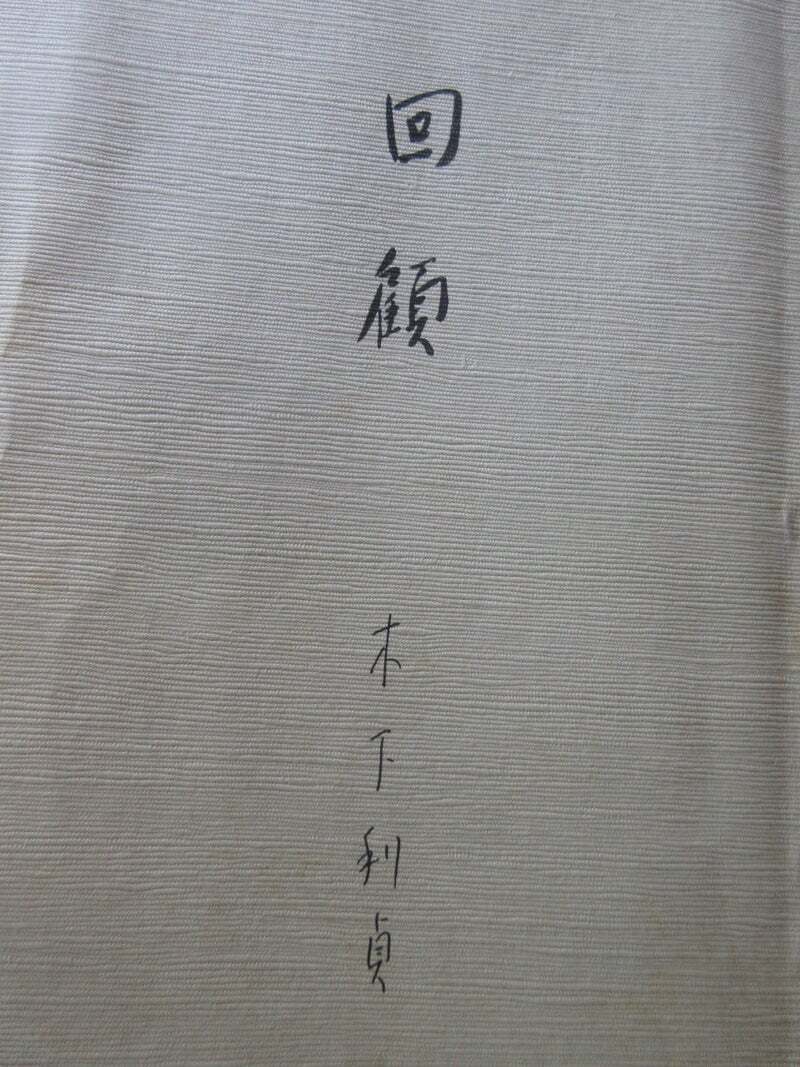 回顧
木下利貞